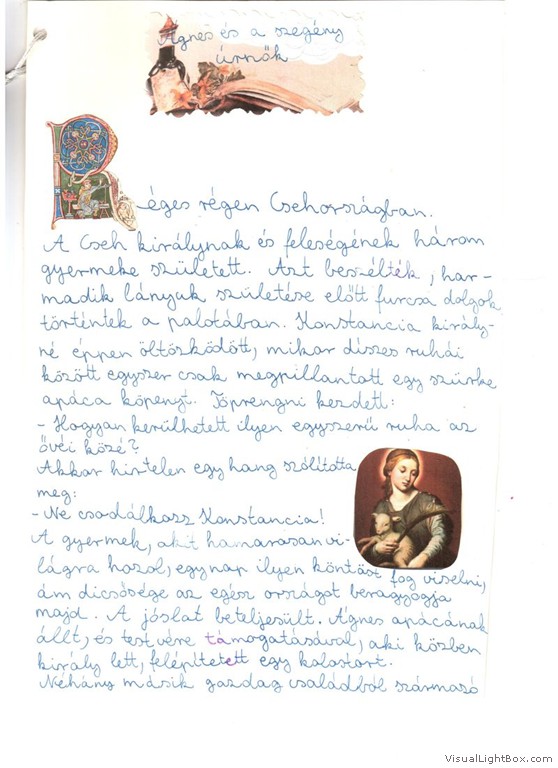 Ágnes és a szegény
úrnők
Réges régen Csehországban.
A Cseh királynak és feleségének három
gyermeke született. Azt beszélték, har-
madik lányuk születése előtt furcsa dolgok
történtek a palotában. Konstancia király-
né éppen öltözködött, mikor díszes ruhái
között egyszer csak megpillantott egy szürke
apáca köpenyt. Töprengni kezdett:
- Hogyan kerülhetett ilyen egyszerű ruha az
övéi közé?
Akkor hirtelen egy hang szólította
meg:
- Ne csodálkozz Konstancia!
A gyermek, akit hamarosan vi-
lágra hozol, egy nap ilyen köntöst fog viselni,
ám dicsősége az egész országot beragyogja
majd. A jóslat beteljesült. Ágnes apácának
állt, és testvére támogatásával, aki közben
király lett, felépítetett egy kolostort.
Néhány másik gazdag családból származó
VisualLightBox.com